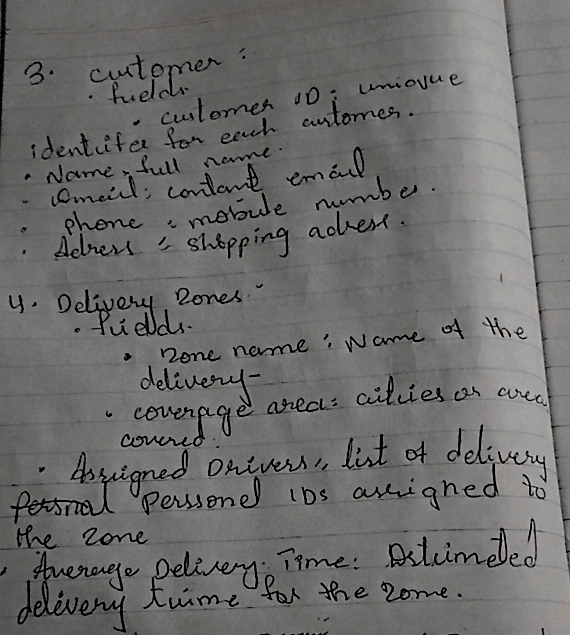 3. customer :
• fields
• customer ID : uniovue
identiifer for each customer.
• Name, full name.
• Email : contant email
• phone : mobile number.
• Adress : shipping adress.
4. Delivery Zones :-
• fields.
• Zone name : Name of the
delivery-
• coverage area : citcies or area
covered.
• Assigned Drivers, list of delivery
Perssonel IDs assigned to
the zone
• Average Delivery Time : Estimeted
delivery tuime for the zone.